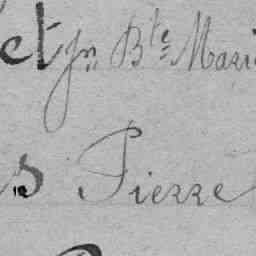 et Jn Bte Mari
s Pierre